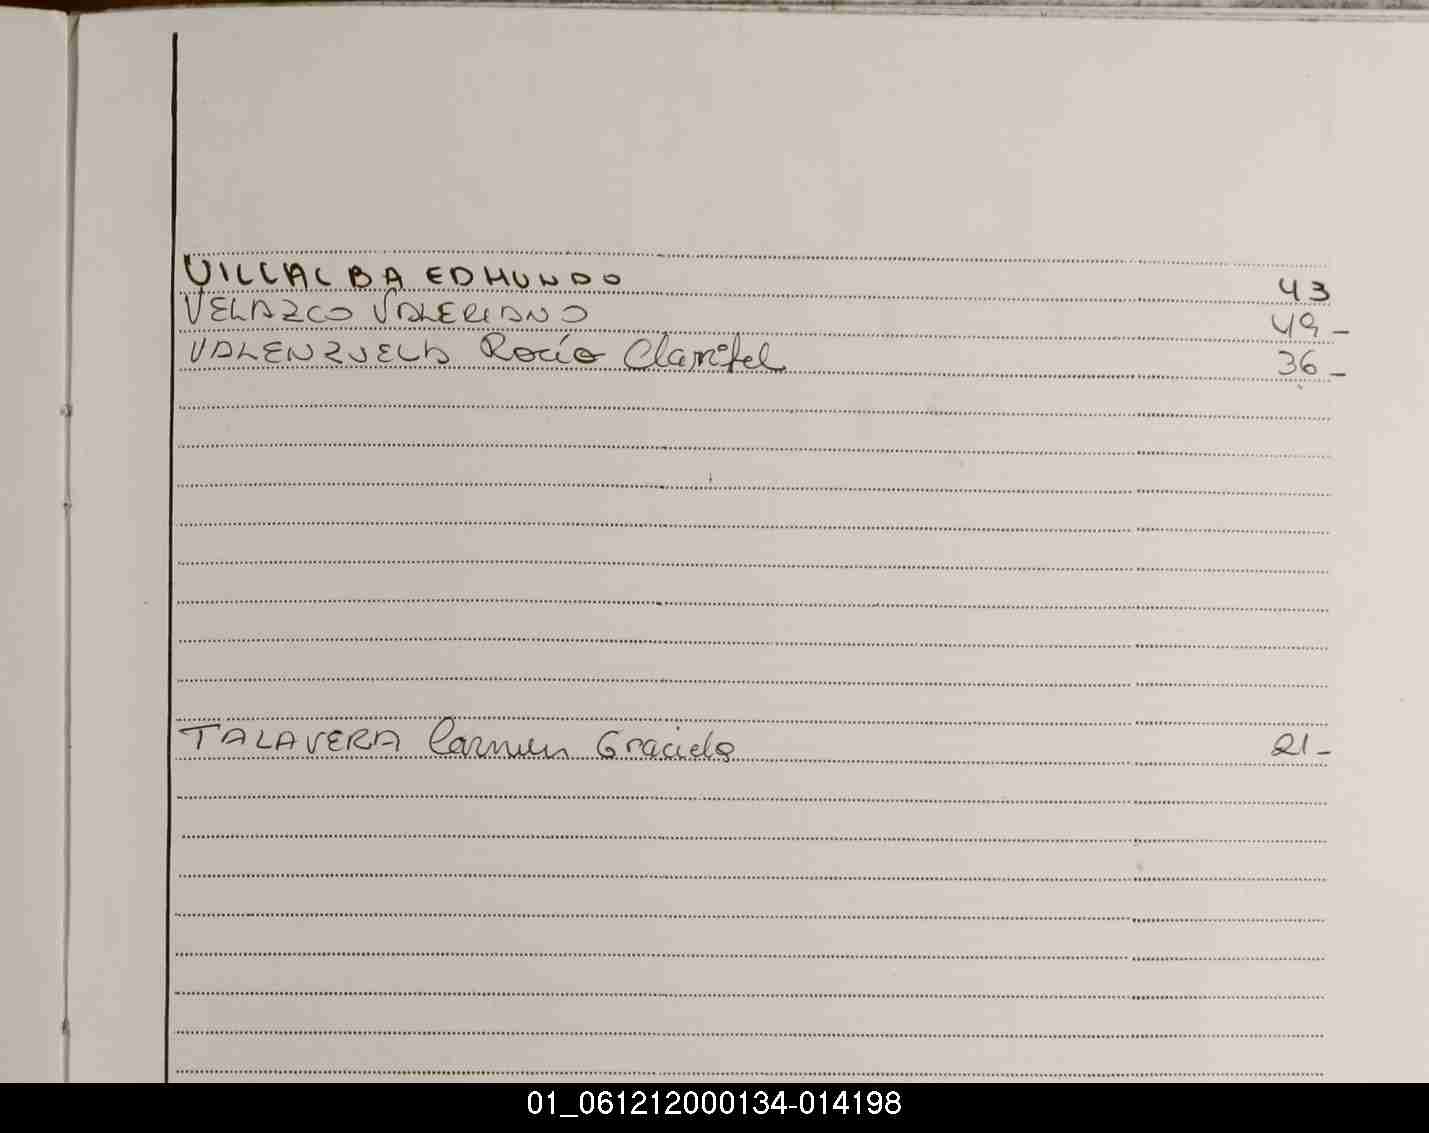 VILLALBA EDMUNDO 43
VELAZCO VALERIANO 49 -
VALENZUELA Rocío Claritel 36 -
TALAVERA Carmen Graciela 21 -
01_061212000134-014198